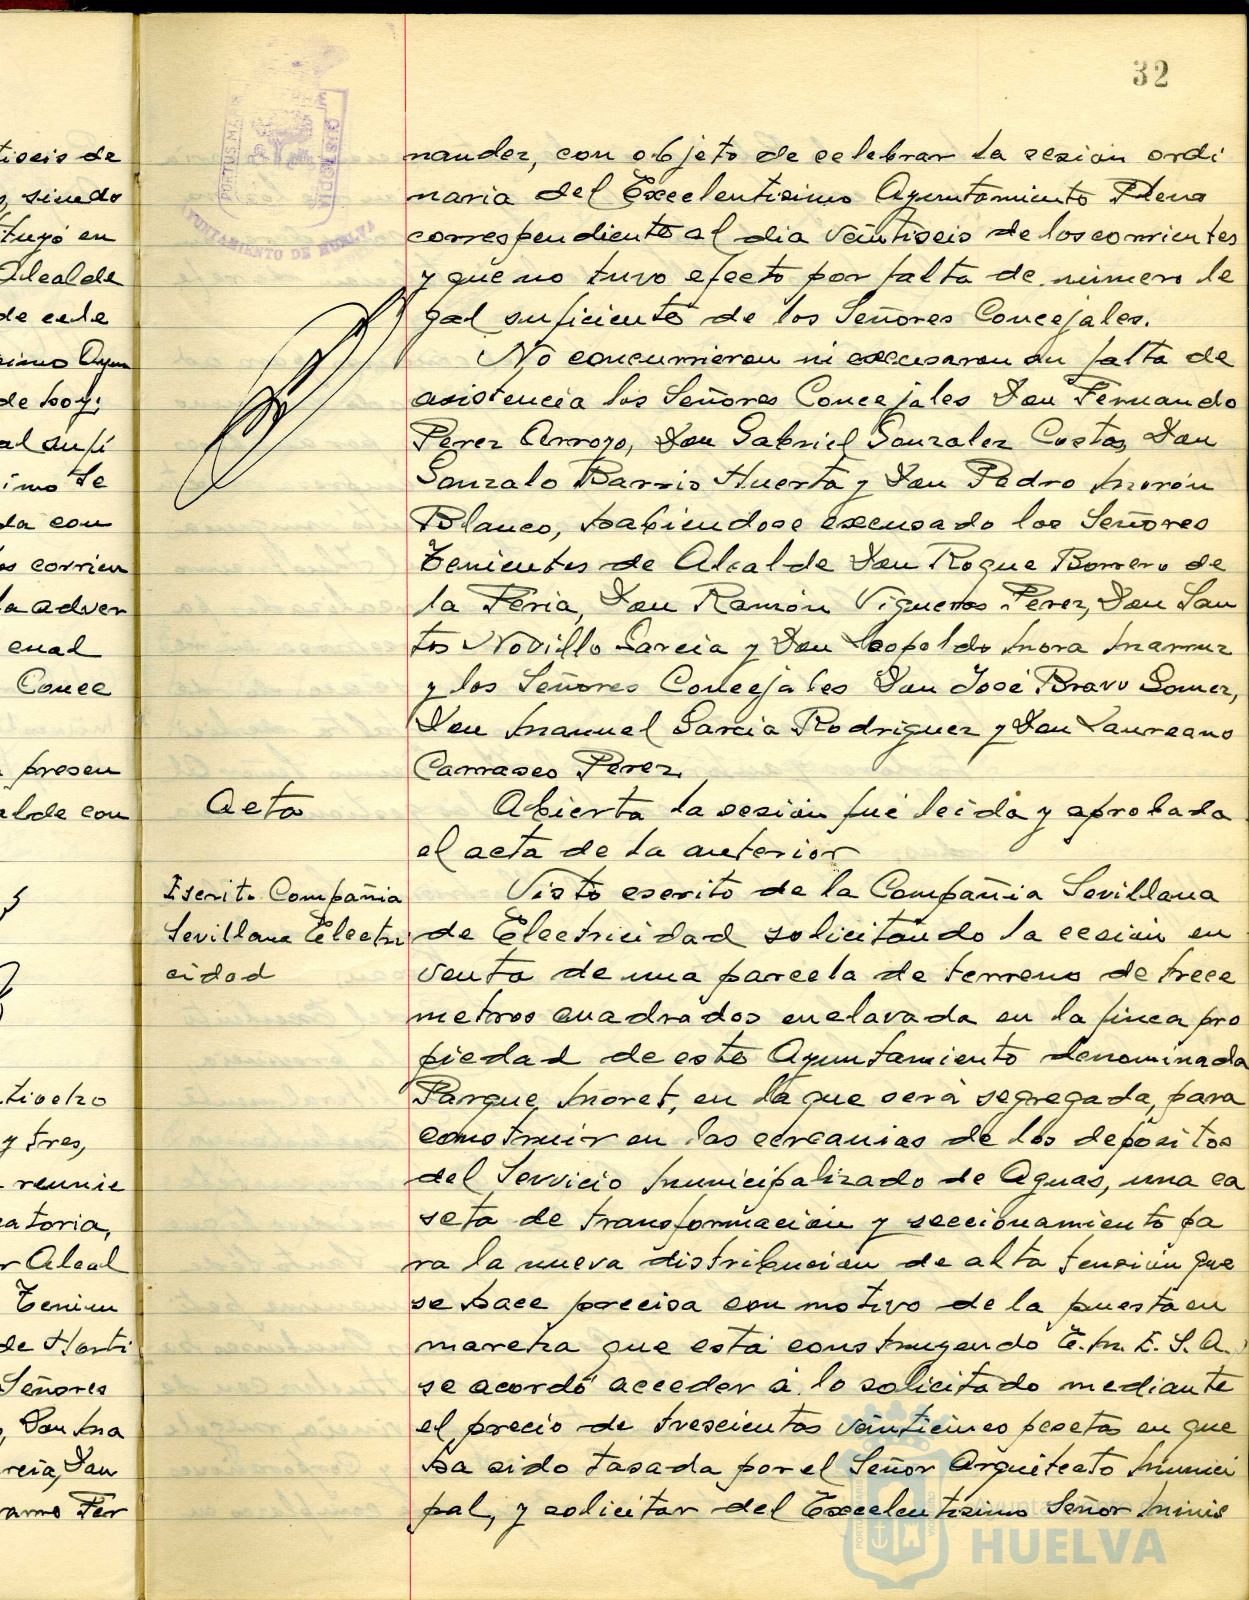 32
nandez, con objeto de celebrar la sesión ordi
naria del Excelentisimo Ayuntamiento Pleno
correspondiente al dia veintiseis de los corrientes
y que no tuvo efecto por falta de número le
gal suficiente de los Señores Concejales.
No concurrieron ni excusaron su falta de
asistencia los Señores Concejales Don Fernando
Perez Arroyo, Don Gabriel Gonzalez Costas, Don
Gonzalo Barris Huerta y Don Pedro Morón
Blanco, habiendose excusado los Señores
Tenientes de Alcalde Don Roque Borrero de
la Feria, Don Ramón Vigueras Perez, Don San
tos Novillo Garcia y Don Leopoldo Mora
y los Señores Concejales Don José Bravo Gomez,
Don Manuel Garcia Rodriguez y Don Laureano
Carrasco Perez.
Acta
Abierta la sesión fué leida y aprobada
el acta de la anterior
Escrito Compañia
Sevillana Electri
cidad
Visto escrito de la Compañia Sevillana
de Electricidad solicitando la cesión en
venta de una parcela de terreno de trece
metros cuadrados enclavada en la finca pro
piedad de este Ayuntamiento denominada
Parque Moret, en la que será segregada, para
construir en las cercanias de los depósitos
del Servicio Municipalizado de Aguas, una ca
seta de transformación y seccionamiento pa
ra la nueva distribucion de alta tensión que
se hace precisa con motivo de la puesta en
marcha que está construyendo E.M.E.S.A.
se acordó acceder á lo solicitado mediante
el precio de trescientas veinticinco pesetas en que
ha sido tasada por el Señor Arquitecto Munici
pal, y solicitar del Excelentisimo Señor Minis
tiseis de
siendo
tuyó en
Alcalde
de cele
simo Ayun
de hoy;
al sufi
imo Se
da con
os corrien
la adver
cual
Conce
presen
alde con
y tres,
reunie
catoria,
r Alcal
Tenien
de Marti
Señores
Don Ma
rcia, Don
ramo Fer
AYUNTAMIENTO DE HUELVA
Ayuntamiento de
HUELVA